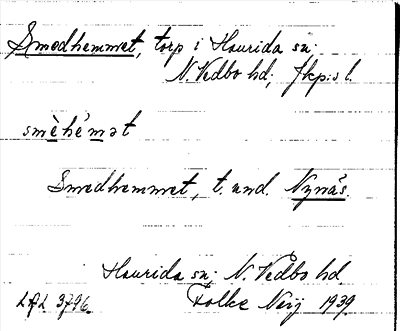 Smedhemmet, torp i Haurida sn;
N. Vedbo hd; Jkp:s l.
smèhèmət
Smedhemmet, t. und. Nynäs.
Haurida sn; N. Vedbo hd.
3796. Folke Neij 1939